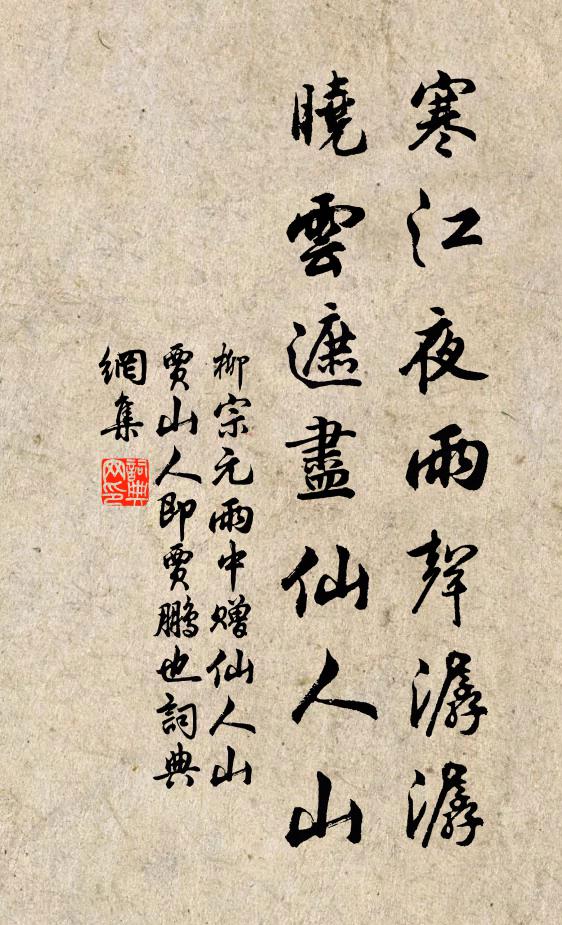 寒江夜雨聲潺潺
曉雲遮盡仙人山
柳宗元雨中赠仙人山
賈山人即賈鵬也詞典
網集
詞典
网印